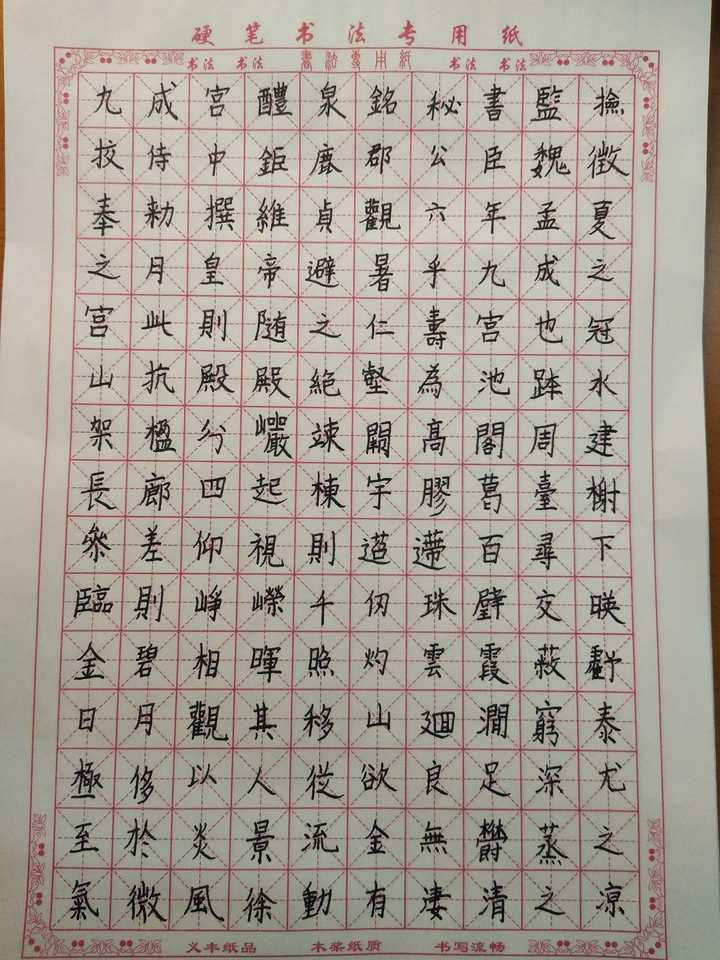 硬笔书法专用纸
书法 书法 書法專用紙 书法 书法
九成宮醴泉銘秘書監撿
挍侍中鉅鹿郡公臣魏徴
奉勑撰維貞觀六年孟夏
之月皇帝避暑乎九成之
宫此則随之仁壽宮也冠
山抗殿殿絕壑為池跨水
架楹分巖竦闕高閣周建
長廊四起棟宇膠葛臺榭
參差仰視則迢遰百尋下
臨則崢嶸千仞珠璧交暎
金碧相暉照灼雲霞蔽虧
日月觀其移山廻澗窮泰
極侈以人從欲良足深尤
至於炎景流金無鬱蒸之
氣微風徐動有淒清之凉
义丰纸品 木桨纸质 书写流畅